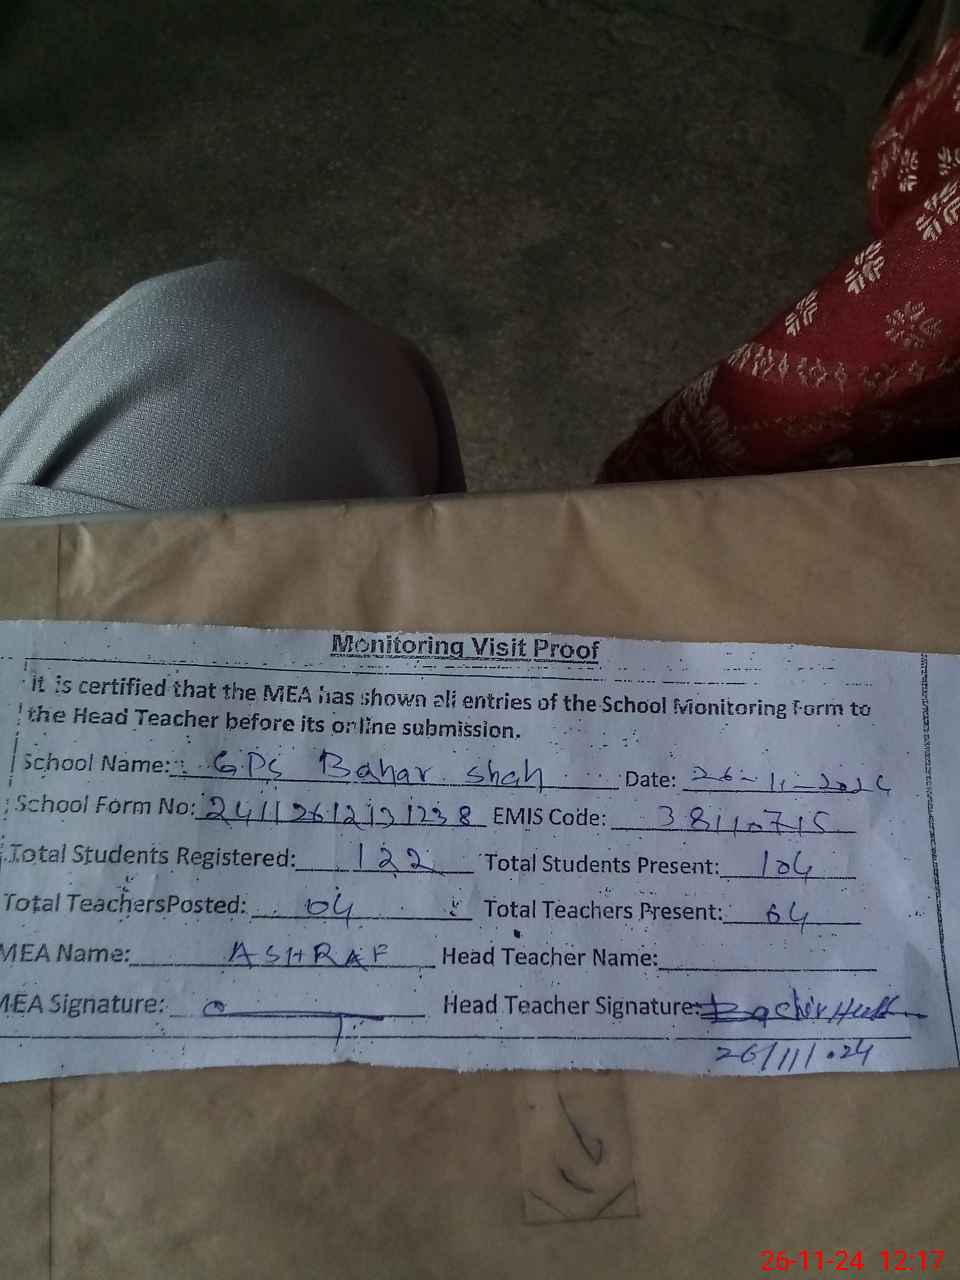 Monitoring Visit Proof
it is certified that the MEA has shown all entries of the School Monitoring Form to
the Head Teacher before its online submission.
School Name: GPS Bahar shah Date: 26-11-2024
School Form No: 24112612131238 EMIS Code: 38110715
Total Students Registered: 122 Total Students Present: 104
Total TeachersPosted: 04 Total Teachers Present: 04
MEA Name: ASHRAF Head Teacher Name:
MEA Signature: Head Teacher Signature:
26/11/.24
26-11-24 12:17